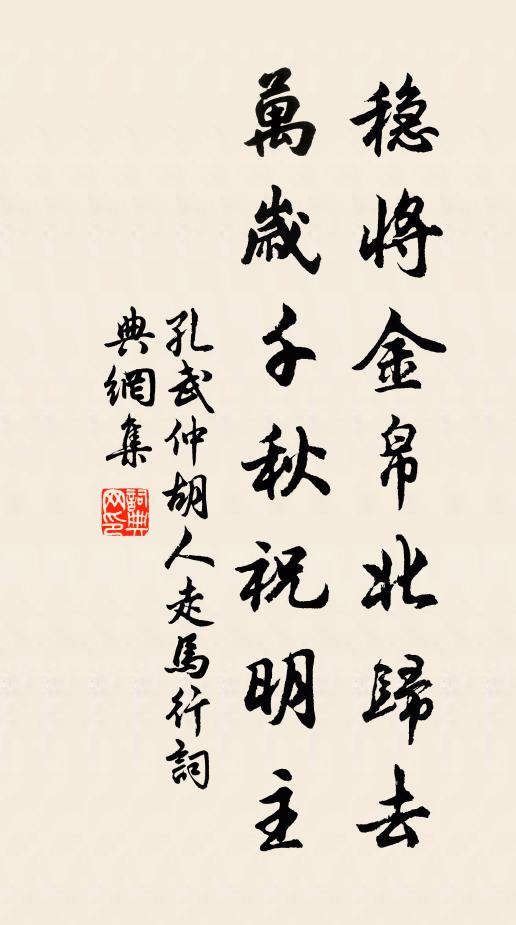 穏將金帛北歸去
萬歲千秋祝明主
孔武仲胡人走馬行詞
典網集
詞典網印